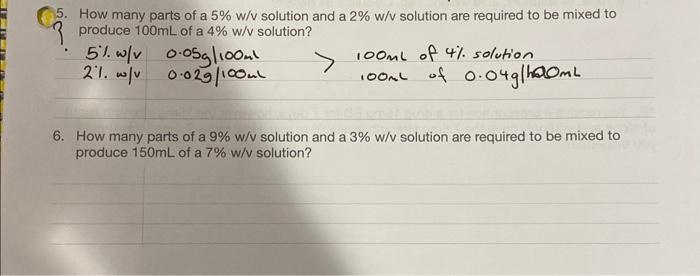 5. How many parts of a 5% w/v solution and a 2% w/v solution are required to be mixed to
? produce 100mL of a 4% w/v solution?
5%. w/v 0.05g/100ml > 100mL of 4%. solution
2%. w/v 0.02g/100ml 100mL of 0.04g/100mL
6. How many parts of a 9% w/v solution and a 3% w/v solution are required to be mixed to
produce 150mL of a 7% w/v solution?